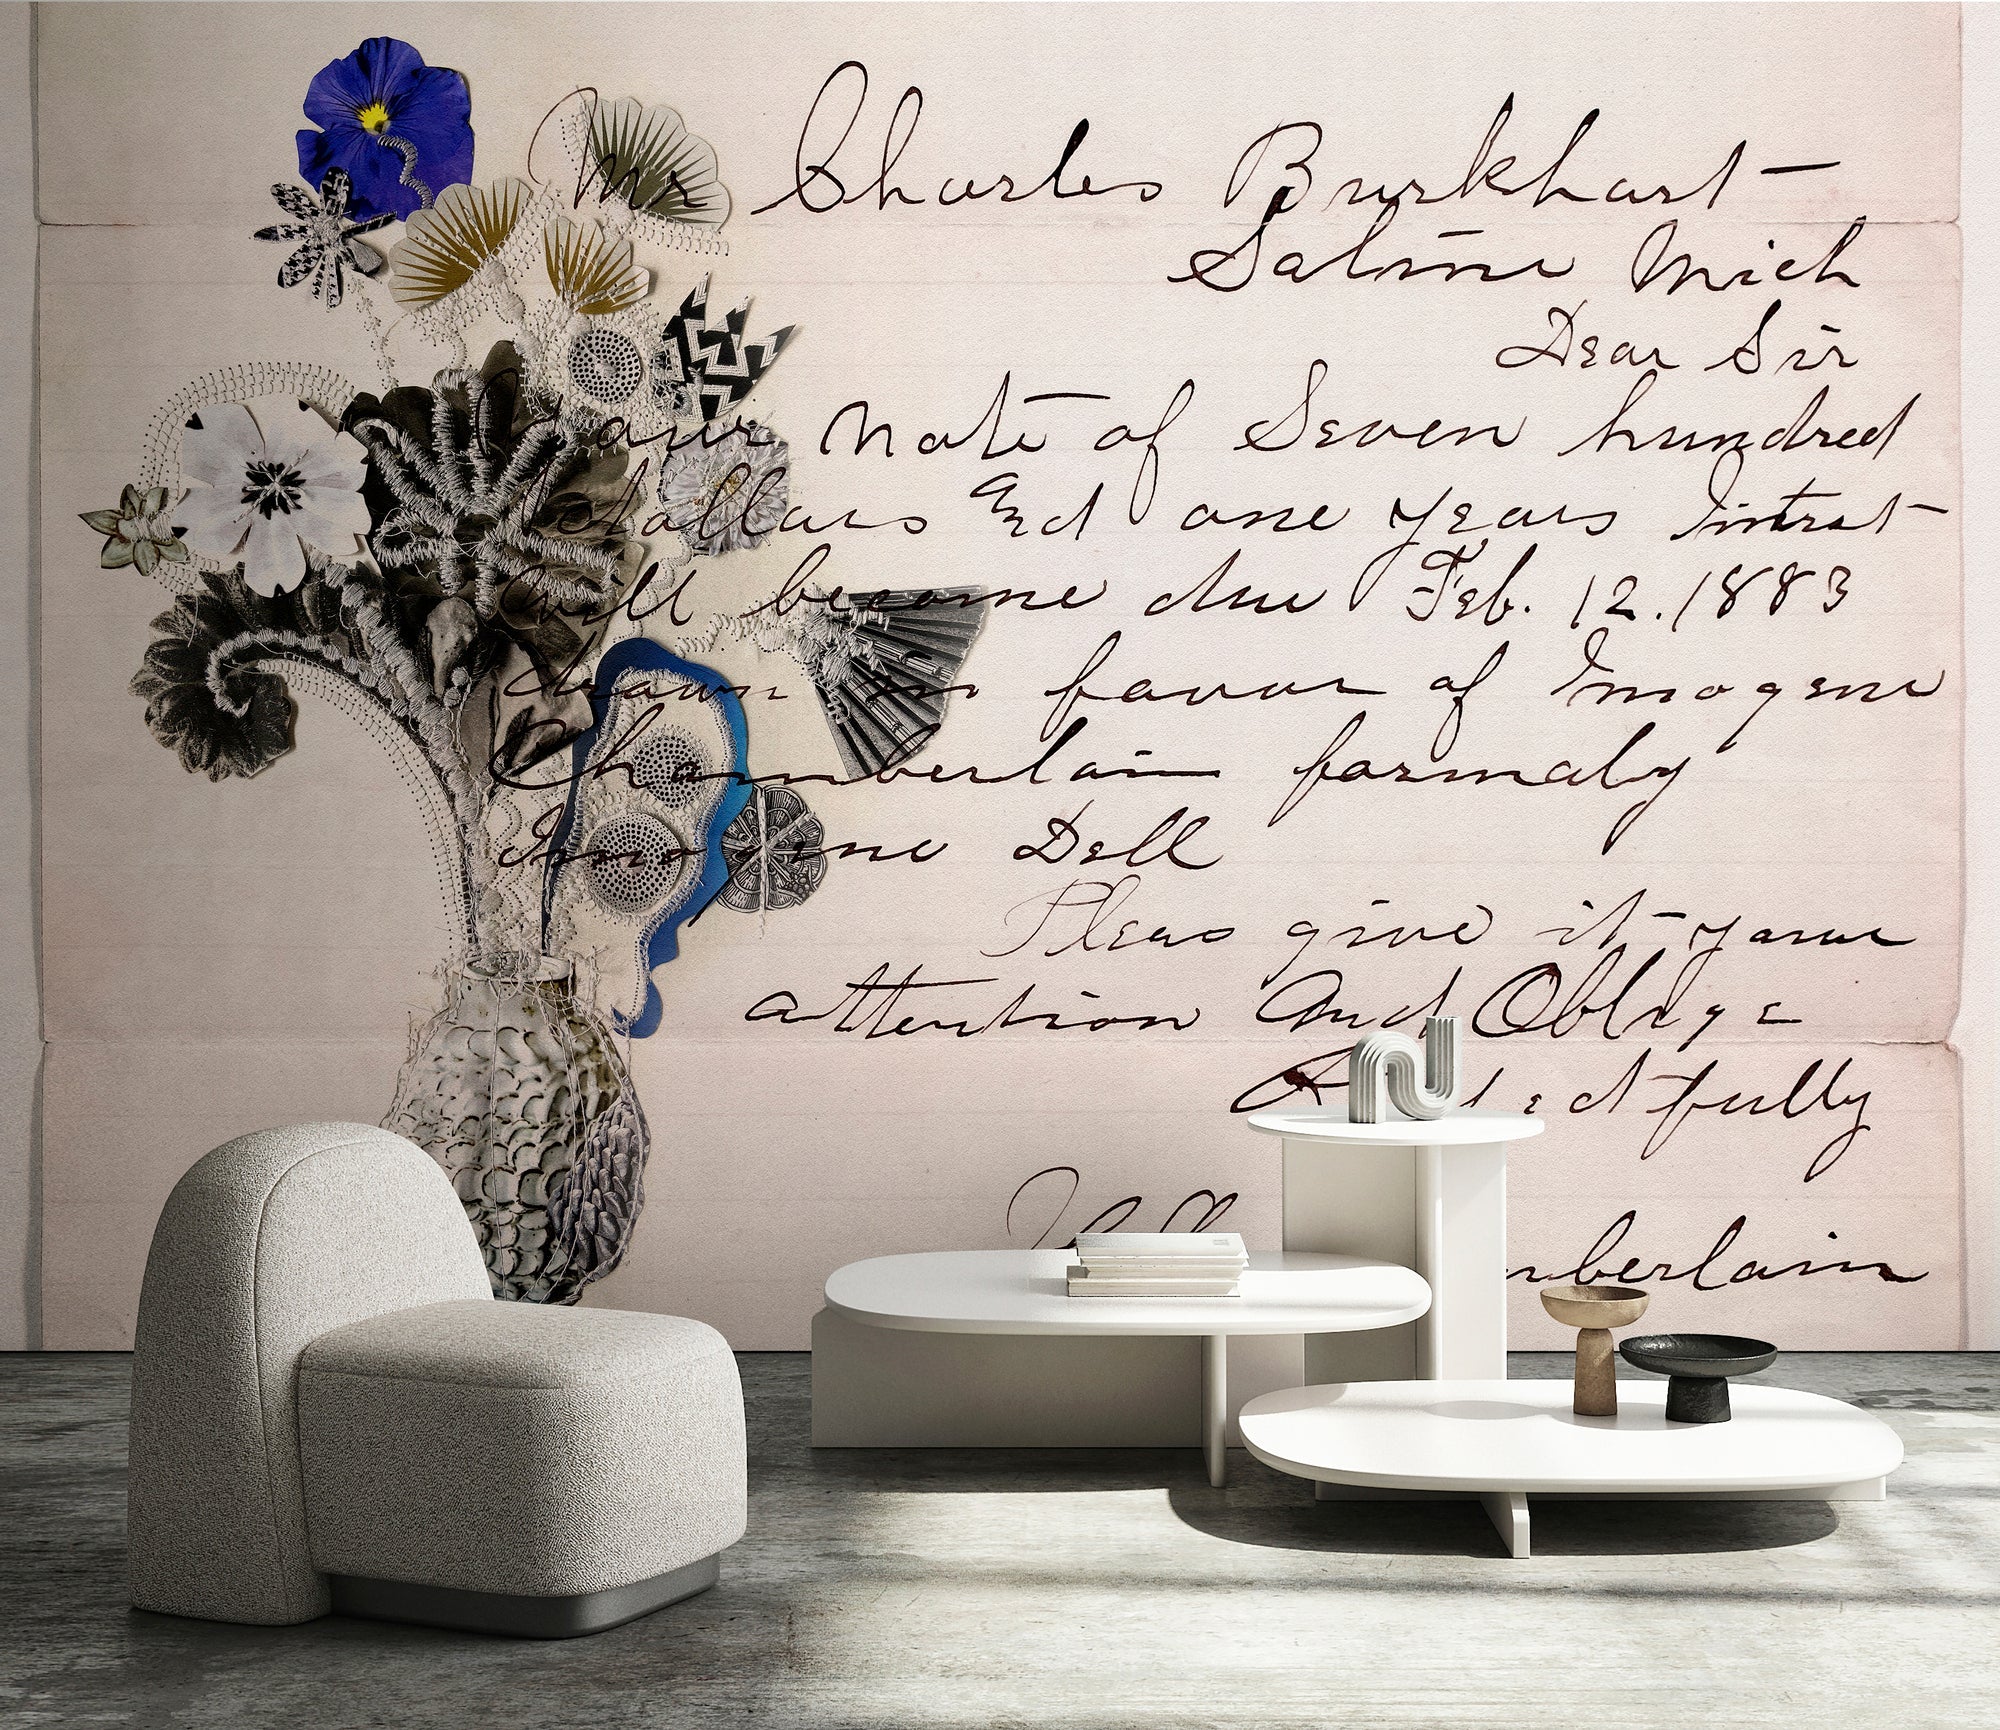 Mr Charles Burkhart
Saline Mich
Dear Sir
Your Note of Seven hundred
dollars And one years Intrest
will become due Feb. 12. 1883
drawn in favour of Imogene
Chamberlain formaly
Imogene Dell
Pleas give it your
attention And Oblige
fully
berlain